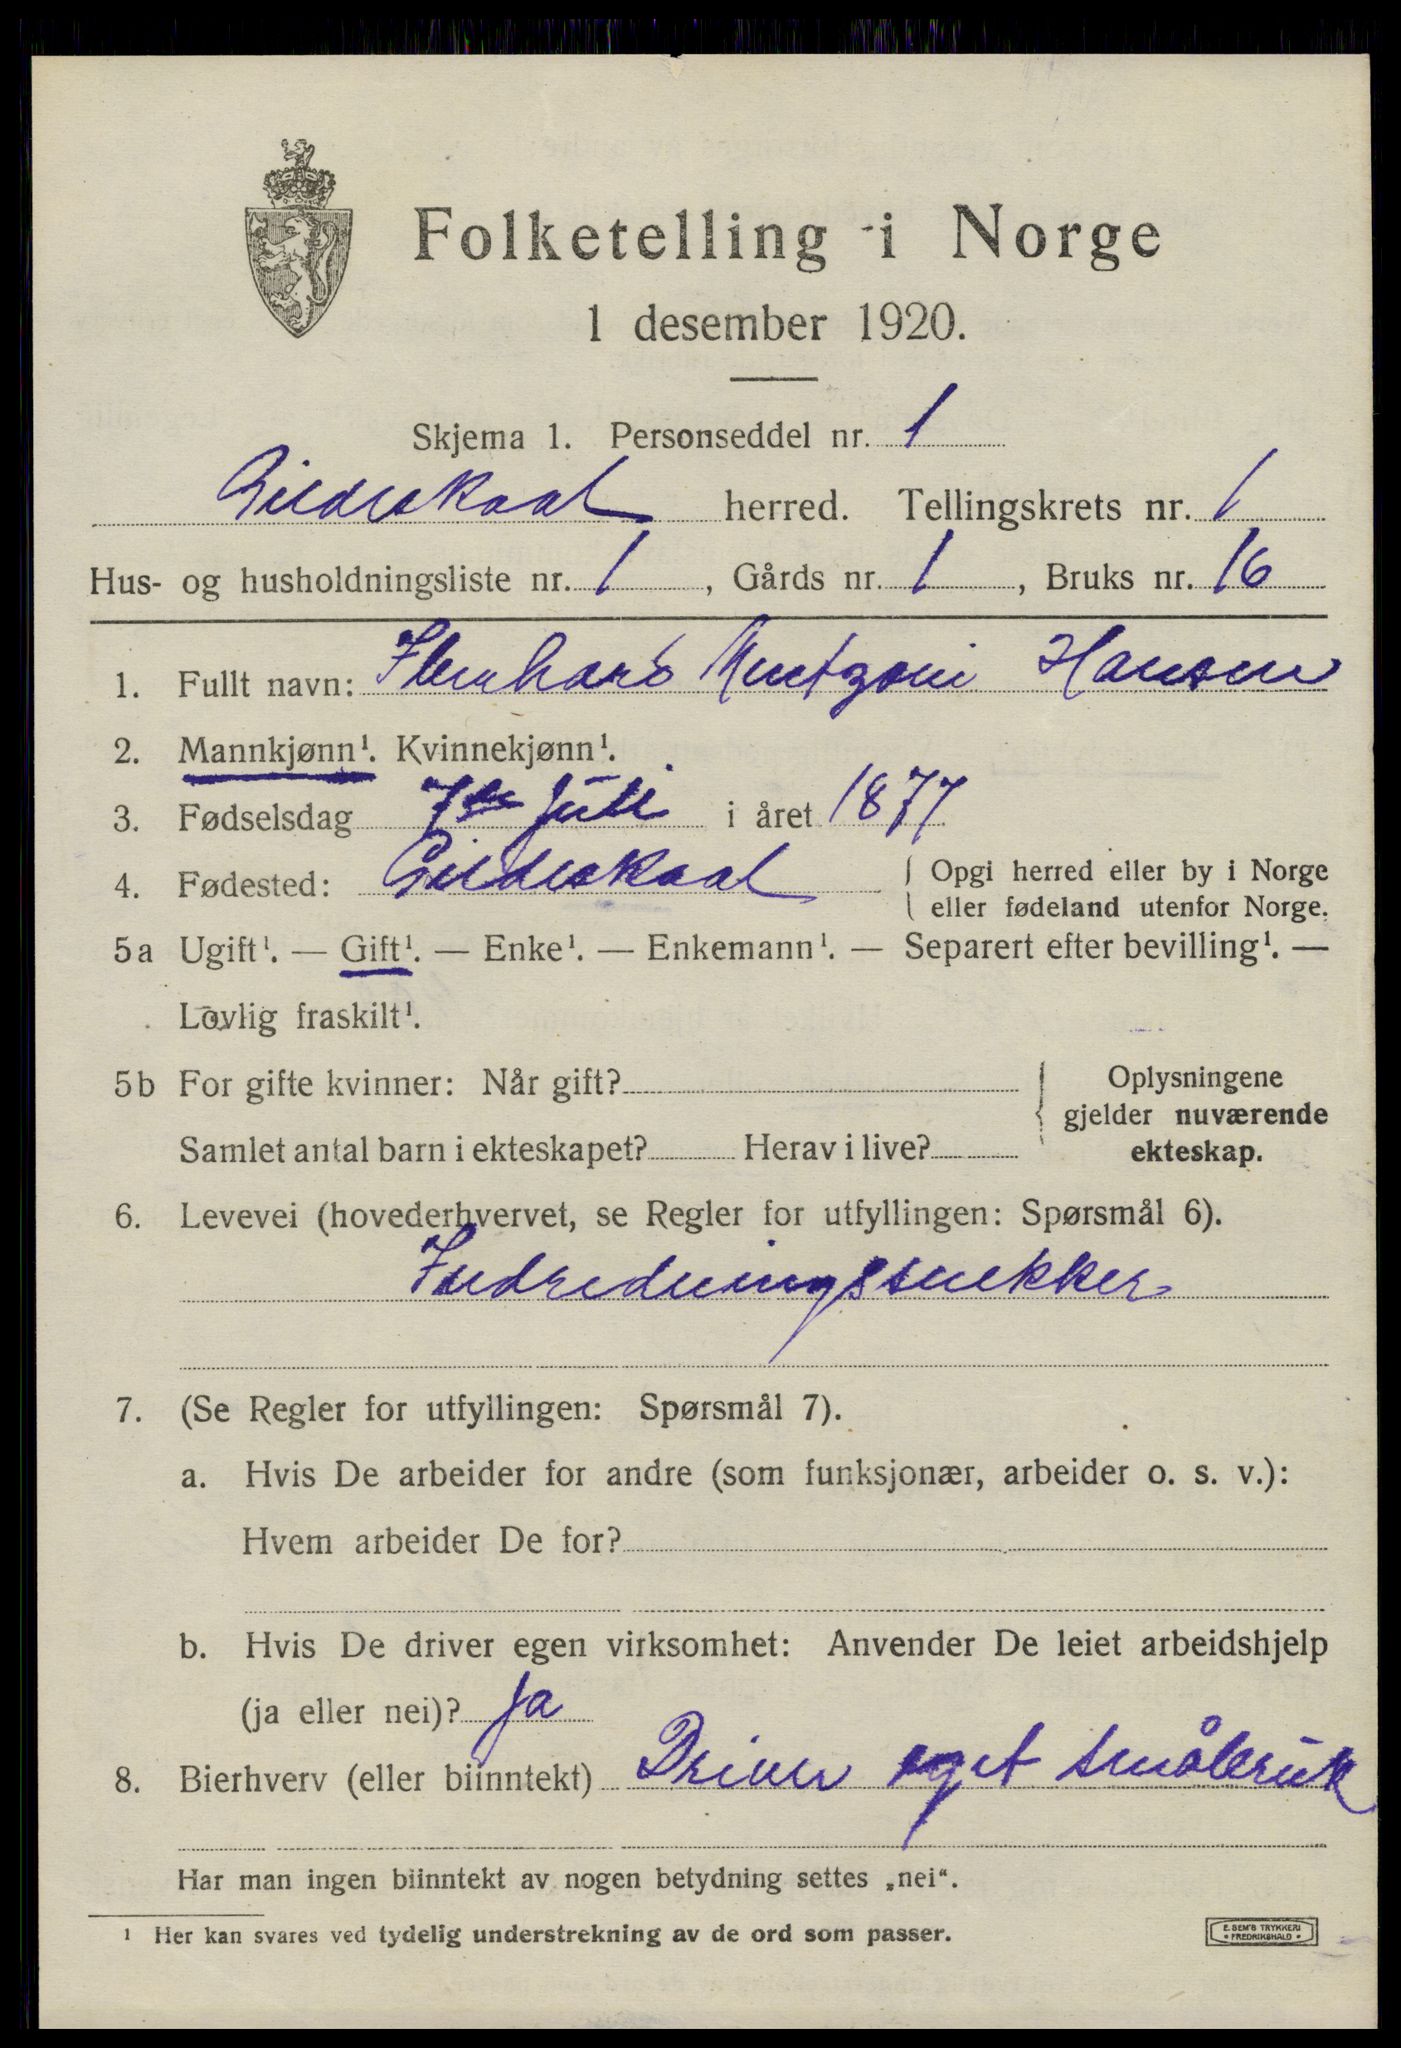 Folketelling i Norge
1 desember 1920.
Skjema 1. Personseddel nr. 1
Gildeskaal herred. Tellingskrets nr. 1
Hus- og husholdningsliste nr. 1, Gårds nr. 1, Bruks nr. 16
1. Fullt navn: Hansen
2. Mannkjønn¹. Kvinnekjønn¹.
3. Fødselsdag 7de juli i året 1877
4. Fødested: Gildeskaal { Opgi herred eller by i Norge
eller fødeland utenfor Norge.
5a Ugift¹. — Gift¹. — Enke¹. — Enkemann¹. — Separert efter bevilling¹. —
Lovlig fraskilt¹.
5b For gifte kvinner: Når gift? { Oplysningene
gjelder nuværende
Samlet antal barn i ekteskapet? Herav i live? ekteskap.
6. Levevei (hovederhvervet, se Regler for utfyllingen: Spørsmål 6).
Indredningssnekker
7. (Se Regler for utfyllingen: Spørsmål 7).
a. Hvis De arbeider for andre (som funksjonær, arbeider o. s. v.):
Hvem arbeider De for?
b. Hvis De driver egen virksomhet: Anvender De leiet arbeidshjelp
(ja eller nei)? ja
8. Bierhverv (eller biinntekt) Driver eget småbruk
Har man ingen biinntekt av nogen betydning settes „nei“.
¹ Her kan svares ved tydelig understrekning av de ord som passer.
E. SEM'S TRYKKERI
FREDRIKSHALD